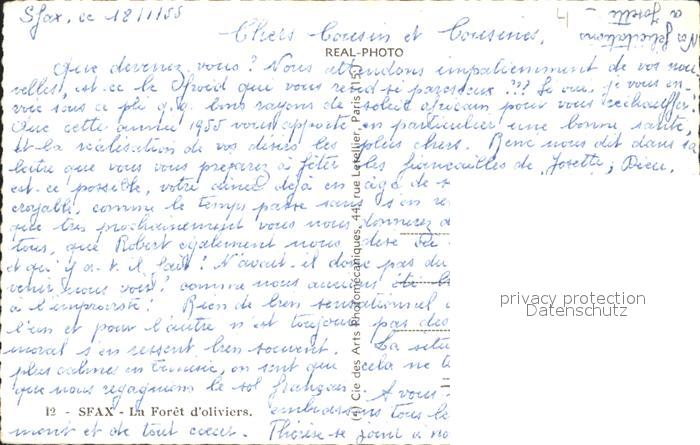 Sfax, ce 18/1/55
Nos félicitations
à Josette
Chers Cousin et Cousines,
REAL-PHOTO
Que devenez vous? Nous attendons impatiemment de vos nou
velles, est-ce le froid que vous rend si paresseux ??? Si oui, je vous en-
voie sous ce pli q.q. bons rayons de soleil africain pour vous réchauffer.
Que cette année 1955 vous apporte en particulier une bonne santé,
et la réalisation de vos désirs les plus chers. René nous dit dans sa
lettre que vous vous préparez à fêter les fiançailles de Josette; Dieu,
est-ce possible, votre aînée déjà en âge de s
croyable, comme le temps passe sans s'en re
que très prochainement vous nous donnerez d
tous, que Robert également nous
et qui y a-t-il fait? N'avait-il donc pas du
venir nous voir? comme nous aurions été
à l'improviste! Rien de bien sensationnel
l'un et pour l'autre n'est toujours pas des
moral s'en ressent bien souvent. La situ
plus calme en Tunisie, on sent que cela ne
que nous regagnions le sol français. A vous
12 - SFAX - La Forêt d'oliviers.
embrassons tous
ment et de tout cœur. Thérèse se joint à no
(4) Cie des Arts Photomécaniques, 44, rue Letellier, Paris (15)
privacy protection
Datenschutz